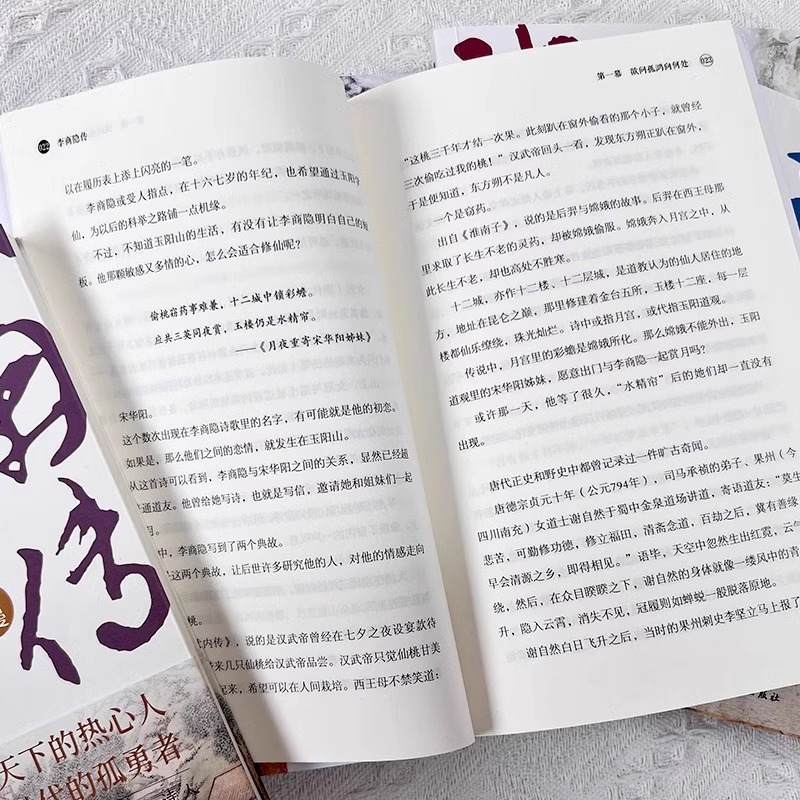 022 李商隐传
以在履历表上添上闪亮的一笔。
李商隐或受人指点，在十六七岁的年纪，也希望通过玉阳学
仙，为以后的科举之路铺一点机缘。
不过，不知道玉阳山的生活，有没有让李商隐明白自己的短
板。他那颗敏感又多情的心，怎么会适合修仙呢？
偷桃窃药事难兼，十二城中锁彩蟾。
应共三英同夜赏，玉楼仍是水精帘。
——《月夜重寄宋华阳姊妹》
宋华阳。
这个数次出现在李商隐诗歌里的名字，有可能就是他的初恋。
如果是，那么他们之间的恋情，就发生在玉阳山。
从这首诗可以看到，李商隐与宋华阳之间的关系，显然已经超
通道友。他曾给她写诗，也就是写信，邀请她和姐妹们一起
月。
中，李商隐写到了两个典故。
这两个典故，让后世许多研究他的人，对他的情感走向
桃。
内传》，说的是汉武帝曾经在七夕之夜设宴款待
来几只仙桃给汉武帝品尝。汉武帝只觉仙桃甘美
起来，希望可以在人间栽培。西王母不禁笑道：
第一幕 欲问孤鸿向何处 023
“这桃三千年才结一次果。此刻趴在窗外偷看的那个小子，就曾经
三次偷吃过我的桃！”汉武帝回头一看，发现东方朔正趴在窗外，
于是便知道，东方朔不是凡人。
一个是窃药。
出自《淮南子》，说的是后羿与嫦娥的故事。后羿在西王母那
里求取了长生不老的灵药，却被嫦娥偷服。嫦娥奔入月宫之中，从
此长生不老，却也高处不胜寒。
十二城，亦作十二楼、十二层城，是道教认为的仙人居住的地
方，地址在昆仑之巅，那里修建着金台五所，玉楼十二座，每一层
楼都仙乐缭绕，珠光灿烂。诗中或指月宫，或代指玉阳道观。
传说中，月宫里的彩蟾是嫦娥所化。那么嫦娥不能外出，玉阳
道观里的宋华阳姊妹，愿意出门与李商隐一起赏月吗？
或许那一天，他等了很久，“水精帘”后的她们却一直没有
出现。
唐代正史和野史中都曾记录过一件旷古奇闻。
唐德宗贞元十年（公元794年），司马承祯的弟子、果州（今
四川南充）女道士谢自然于蜀中金泉道场讲道，寄语道友：“莫生
悲苦，可勤修功德，修立福田，清斋念道，百劫之后，冀有善缘
早会清源之乡，即得相见。”语毕，天空中忽然生出红霓，云气
绕，然后，在众目睽睽之下，谢自然的身体就像一缕风中的青
升，隐入云霄，消失不见，冠履则如蝉蜕一般脱落原地。
谢自然白日飞升之后，当时的果州刺史李坚立马上报了
传
天下的热心人
代的孤勇者